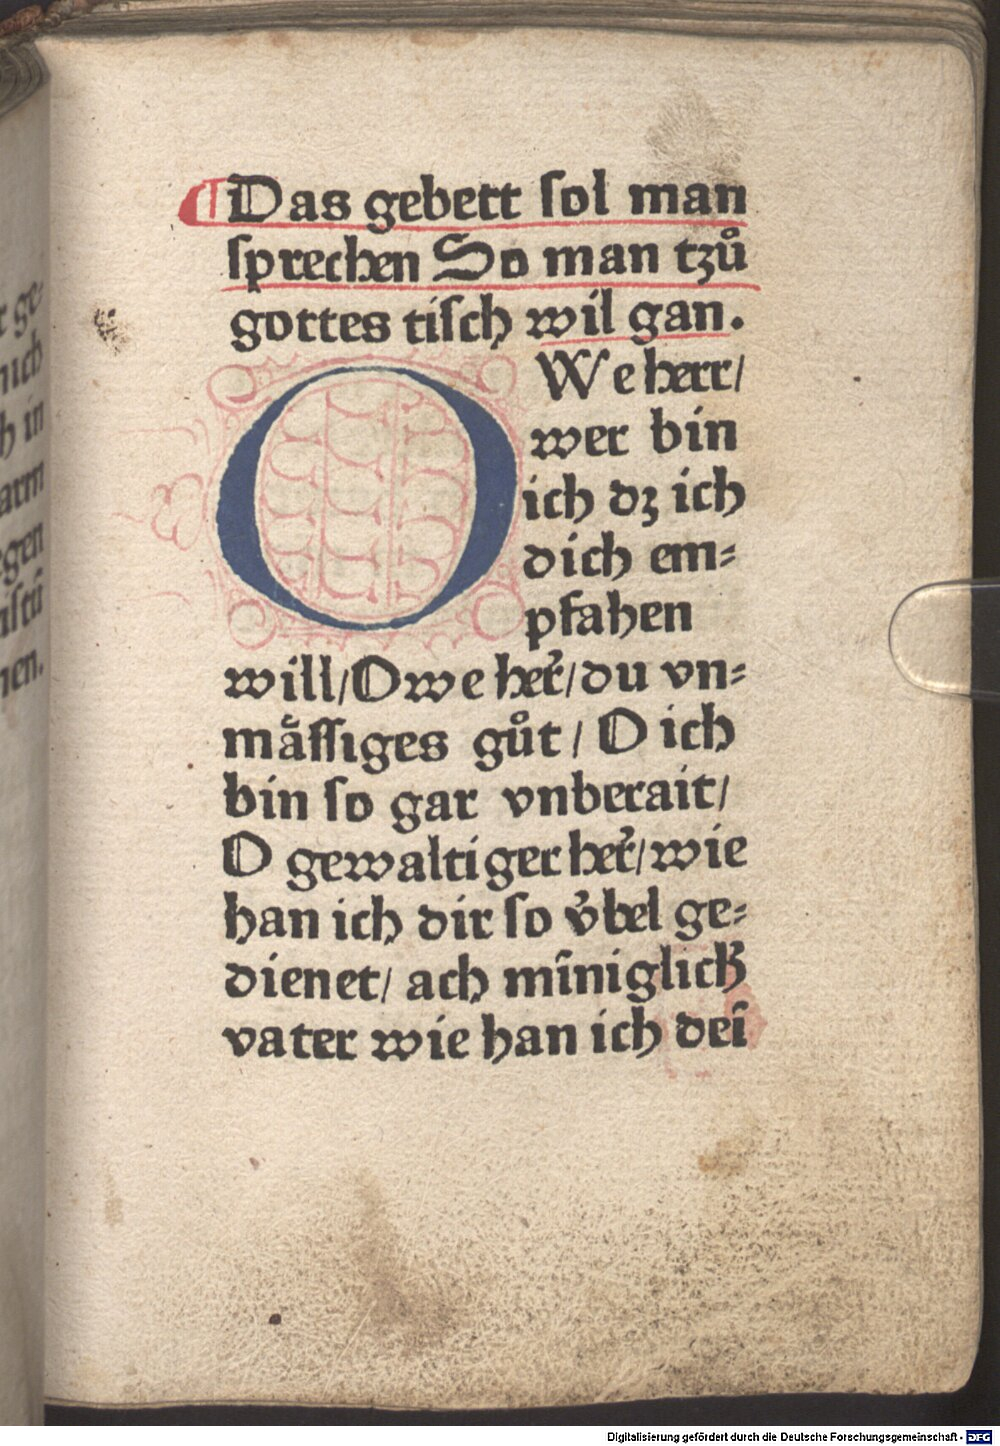 ¶ Das gebett ſol man
ſprechen So man tzuͦ
gottes tiſch wil gan.
OWe herr/
wer bin
ich dꝫ ich
dich em⸗
pfahen
will/Owe her̄/du vn⸗
maͤſſiges guͦt / O ich
bin ſo gar vnberait/
O gewaltiger her̄/wie
han ich dir ſo v̈bel ge⸗
dienet/ ach mīniglich
vater wie han ich deī
Digitalisierung gefördert durch die Deutsche Forschungsgemeinschaft - DFG